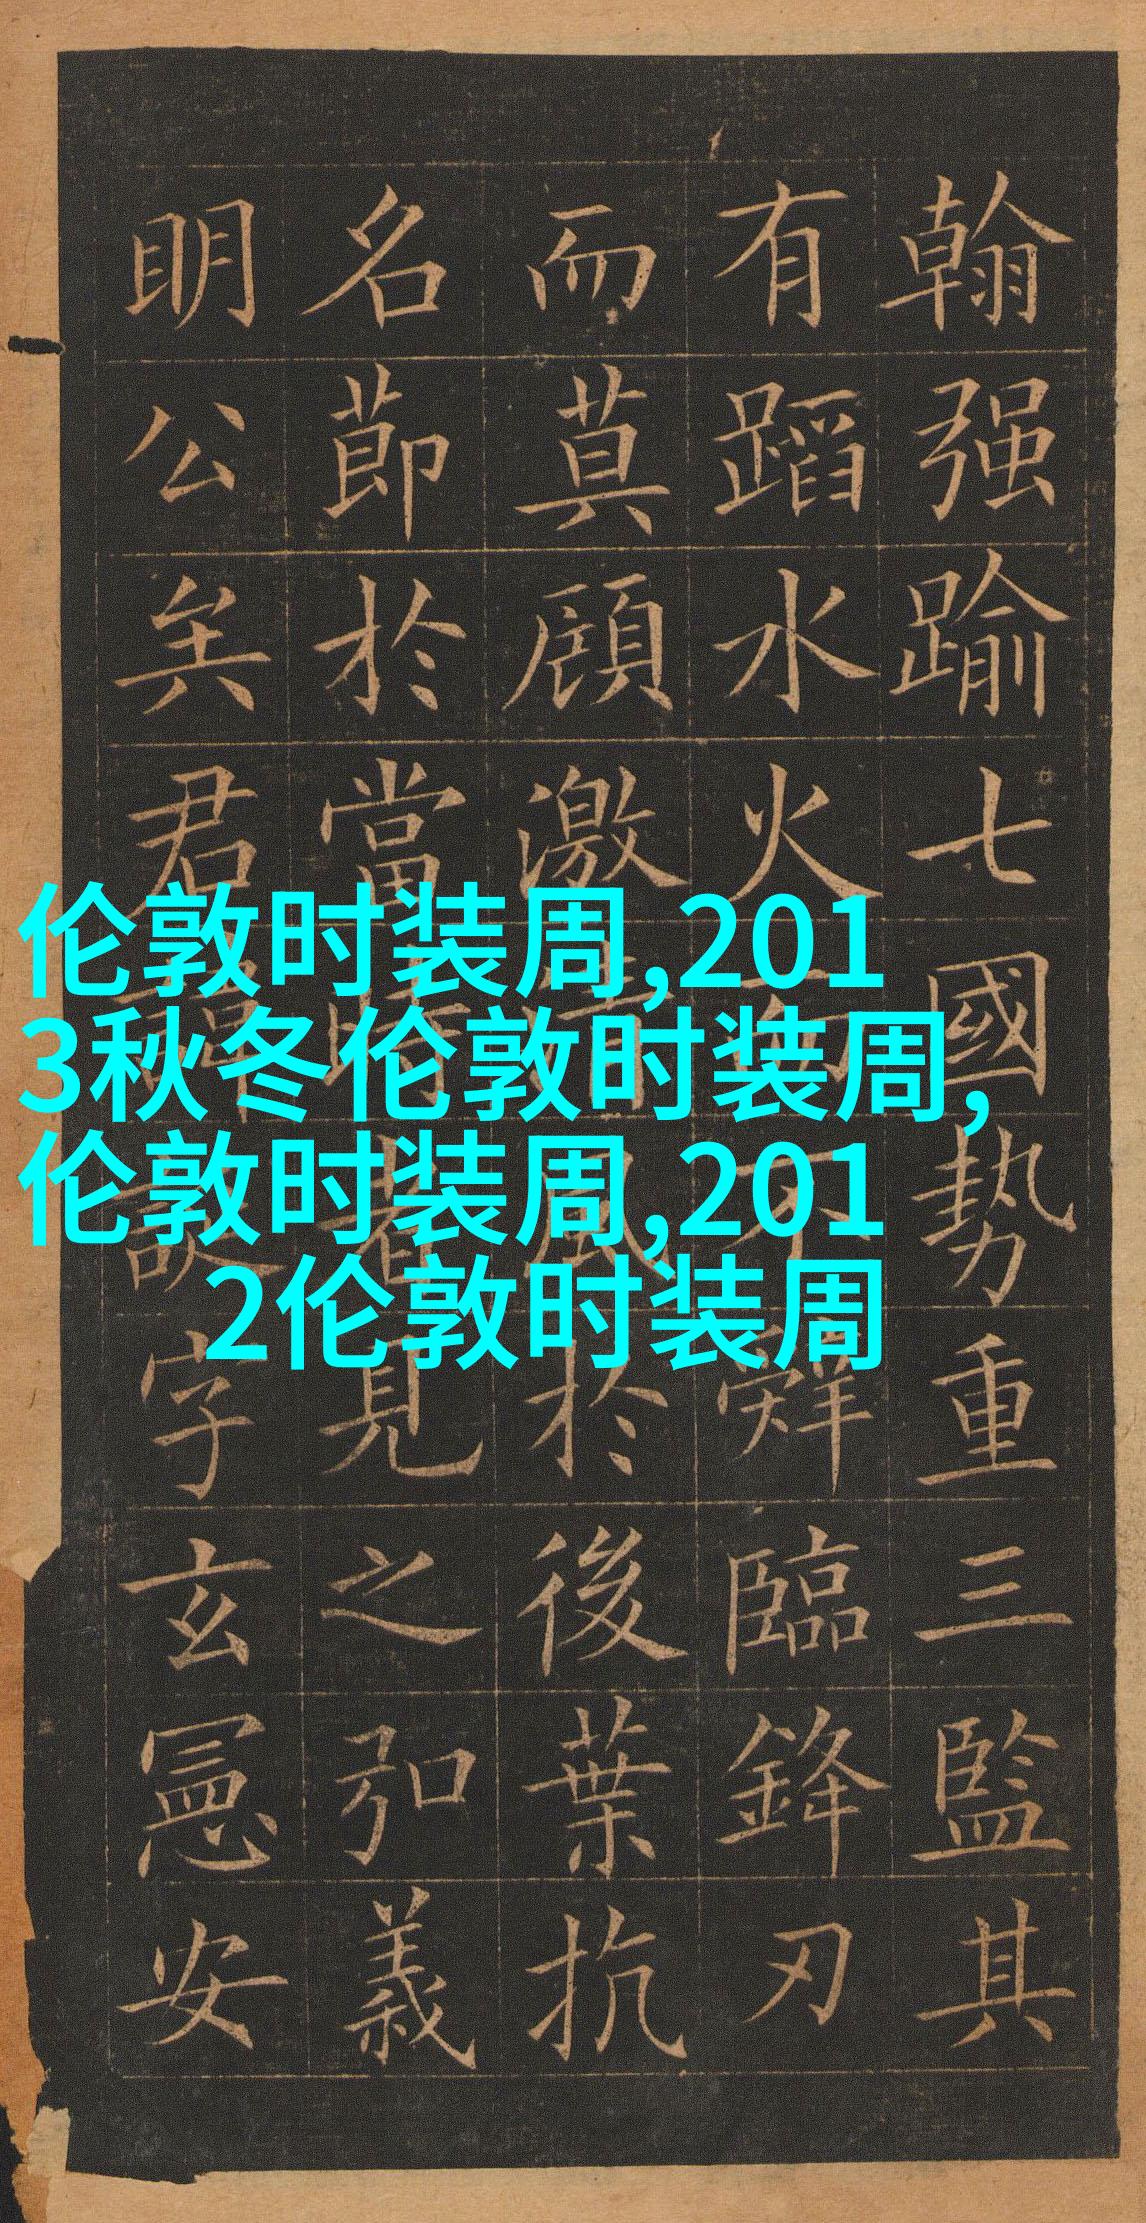 翰强踰七國勢重三監其
有蹈水火而不辭臨鋒刃
而莫顧激清風於後葉抗
名莭於當時者見之弘義
明公矣君諱誕字玄憲安
伦敦时装周,201
3秋冬伦敦时装周,
伦敦时装周,201
2伦敦时装周